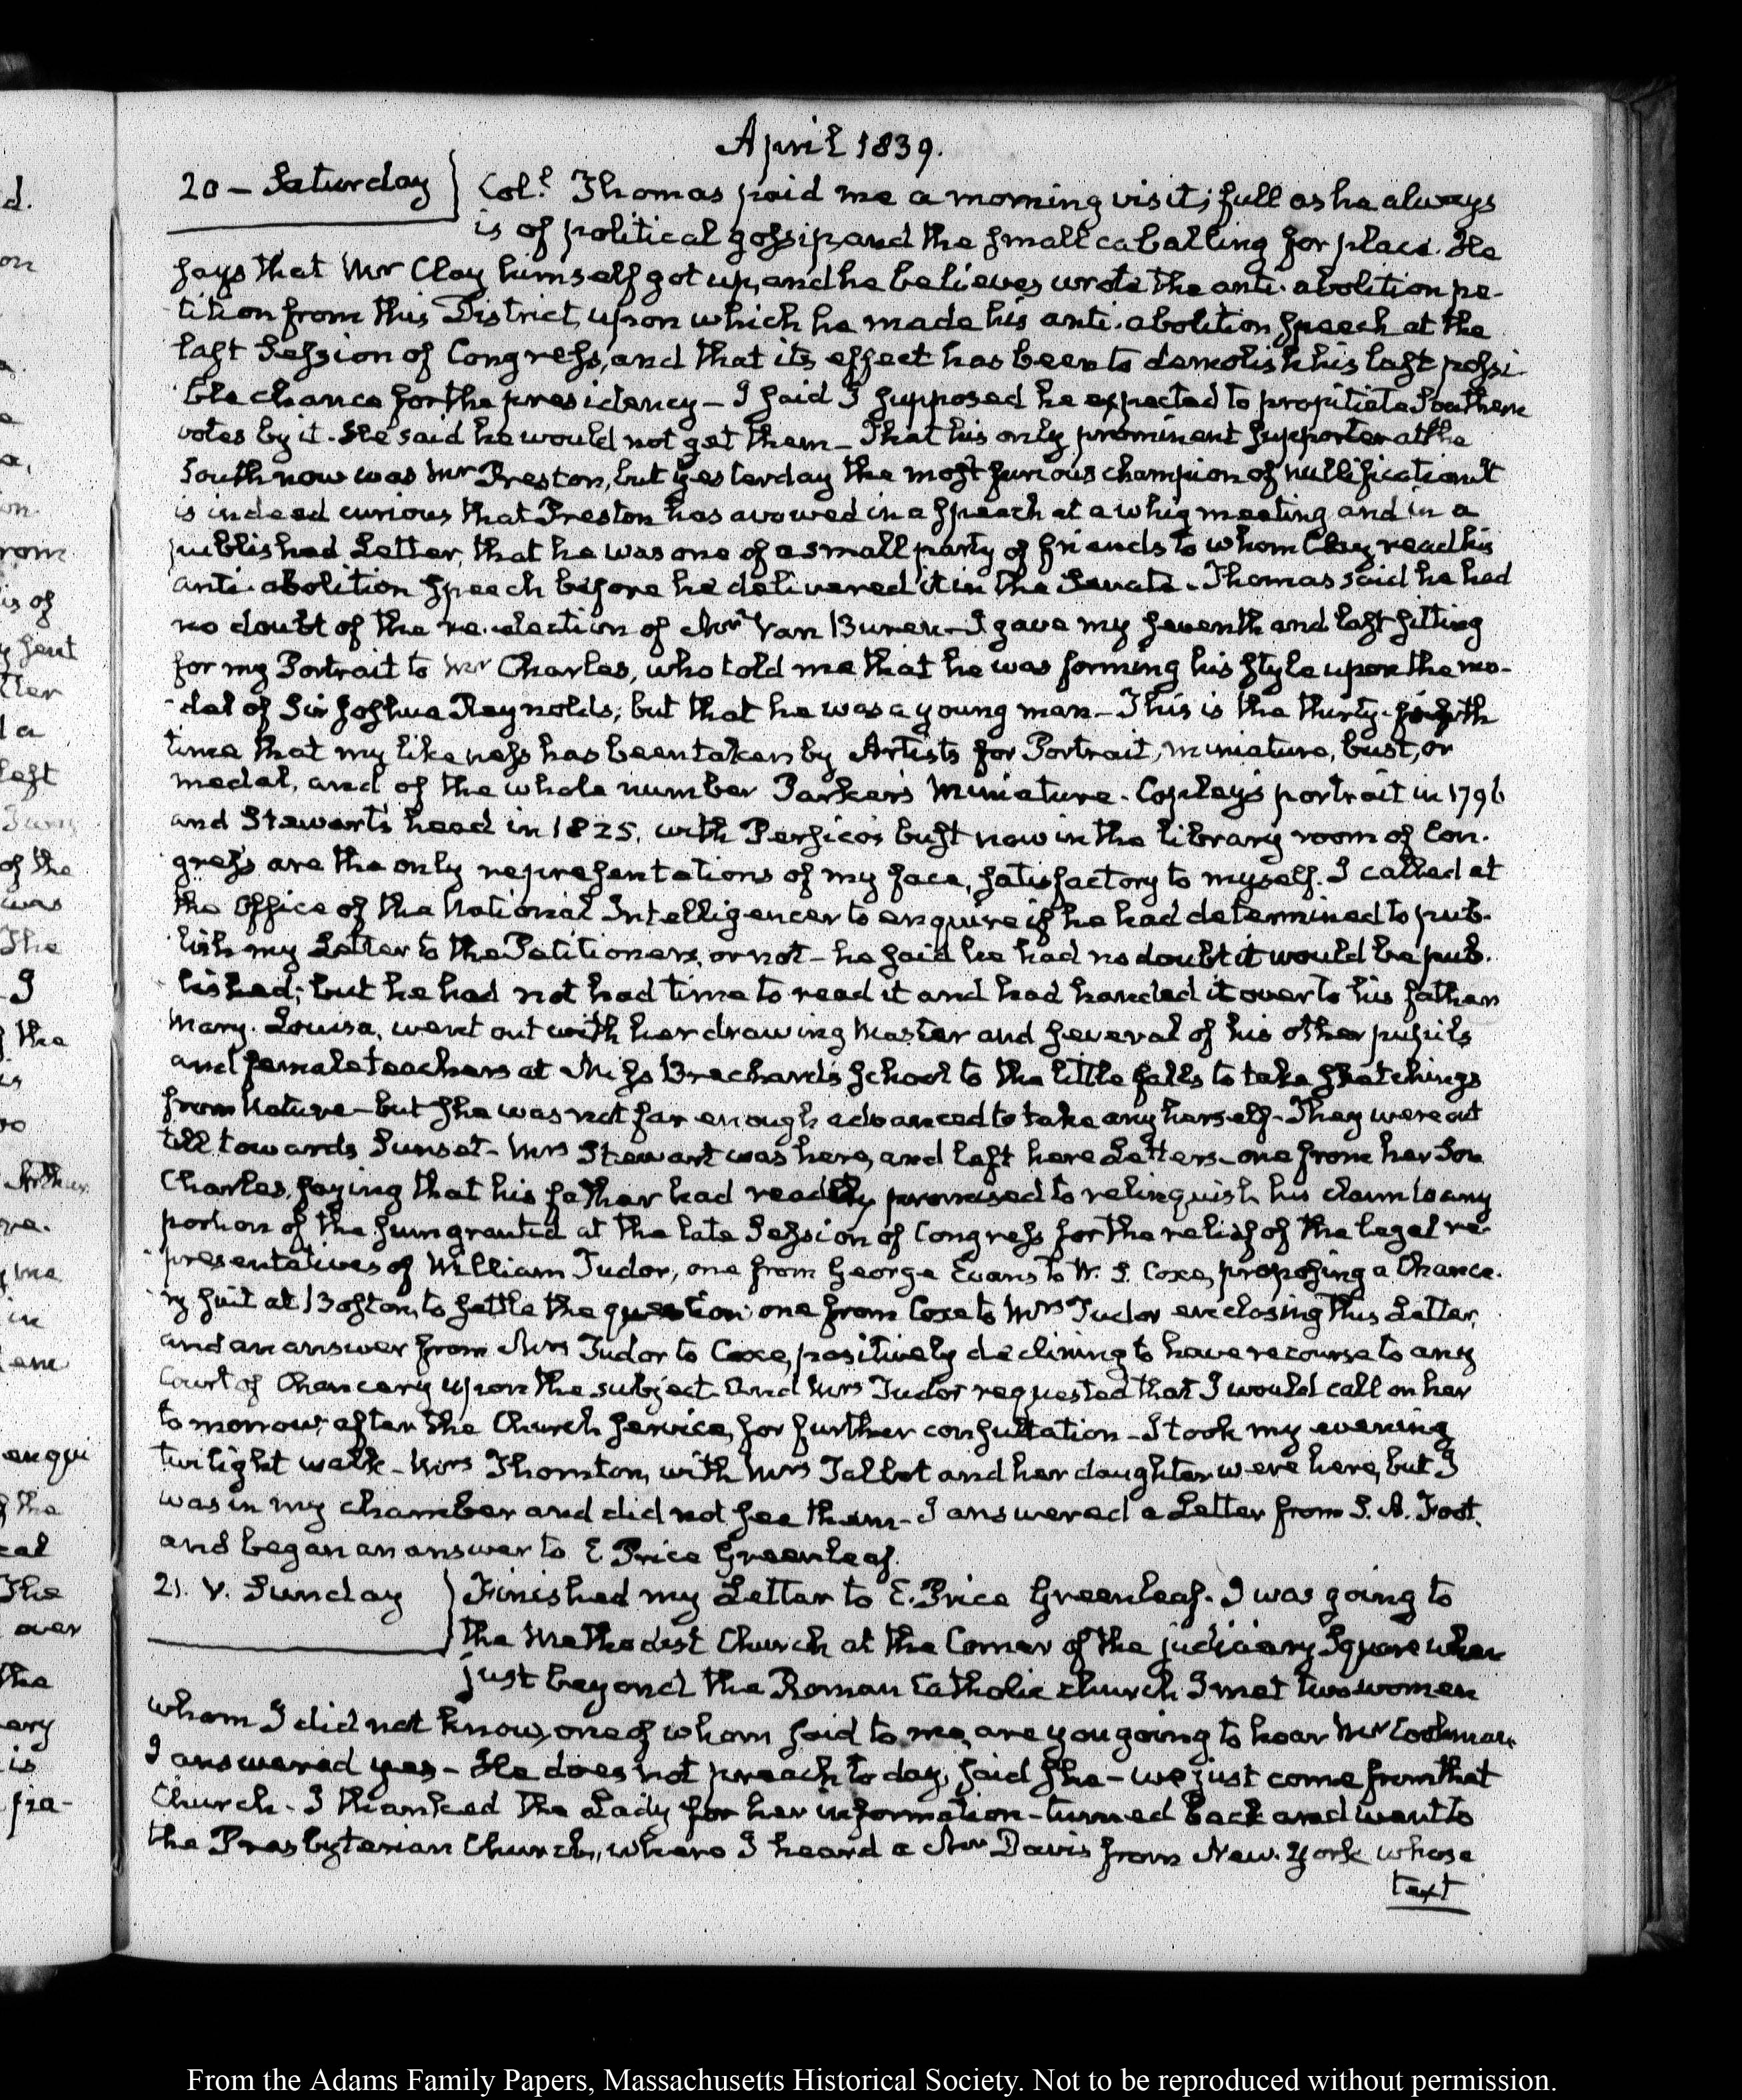 April 1839.
20 – Saturday } Col.l Thomas paid me a morning visit; full as he always
is of political gossip, and the small caballing for place. He
says that Mr Clay himself got up, and he believes wrote the anti-abolition pe-
tition from this District, upon which he made his anti-abolition speech at the
last Session of Congress, and that its effect has been to demolish his last possi-
ble chance for the presidency – I said I supposed he expected to propitiate Southern
votes by it. He said he would not get them – That his only prominent supporter at the
South now was Mr Preston, but yesterday the most furious champion of nullification It
is indeed curious that Preston has avowed in a speech at a whig meeting and in a
published Letter, that he was one of a small party of friends to whom Clay read his
anti-abolition speech before he delivered it in the Senate. Thomas said he had
no doubt of the re-election of Mr Van Buren – I gave my seventh and last sitting
for my Portrait to Mr Charles, who told me that he was forming his style upon the mo-
del of Sir Joshua Reynolds; but that he was a young man – This is the thirty-
time that my likeness has been taken by Artists for Portrait, miniature, bust, or
medal, and of the whole number Parker's Miniature. Copley's portrait in 1796
and Stewart's head in 1825, with Persico's bust now in the library room of Con-
gress are the only representations of my face, satisfactory to myself. I called at
the Office of the National Intelligencer to enquire if he had determined to pub-
lish my Letter to the Petitioners, or not – he said he had no doubt it would be pub-
lished; but he had not had time to read it and had handed it over to his father
Mary-Louisa, went out with her drawing Master and several of his other pupils
and female teachers at Miss Brechard's school to the little falls to take sketchings
from Nature – but she was not far enough advanced to take any herself – They were out
till towards Sunset – Mrs Stewart was here, and left here Letters – one from her Son
Charles, saying that his father had readily promised to relinquish his claim to any
portion of the sum granted at the late Session of Congress for the relief of the legal re-
presentatives of William Tudor, one from George Evans to W. S. Coxe, proposing a Chance-
ry suit at Boston, to settle the question: one from Coxe to Mrs Tudor enclosing this Letter,
and an answer from Mrs Tudor to Coxe, positively declining to have recourse to any
Court of Chancery upon the subject. And Mrs Tudor requested that I would call on her
to morrow, after the Church service, for further consultation – I took my evening
twilight walk – Mrs Thornton, with Mrs Talbot and her daughter were here, but I
was in my chamber and did not see them – I answered a Letter from S. A. Foot,
and began an answer to E. Price Greenleaf.
21. V. Sunday } Finished my Letter to E. Price Greenleaf. I was going to
the Methodist Church at the Corner of the judiciary Square when
just beyond the Roman Catholic church I met two women
whom I did not know, one of whom said to me, are you going to hear Mr Cookman
I answered yes – He does not preach to day, said she – we just come from that
Church. I thanked the Lady for her information – turned back and went to
the Presbyterian Church, where I heard a Mr Davis from New-York whose
text
From the Adams Family Papers, Massachusetts Historical Society. Not to be reproduced without permission.